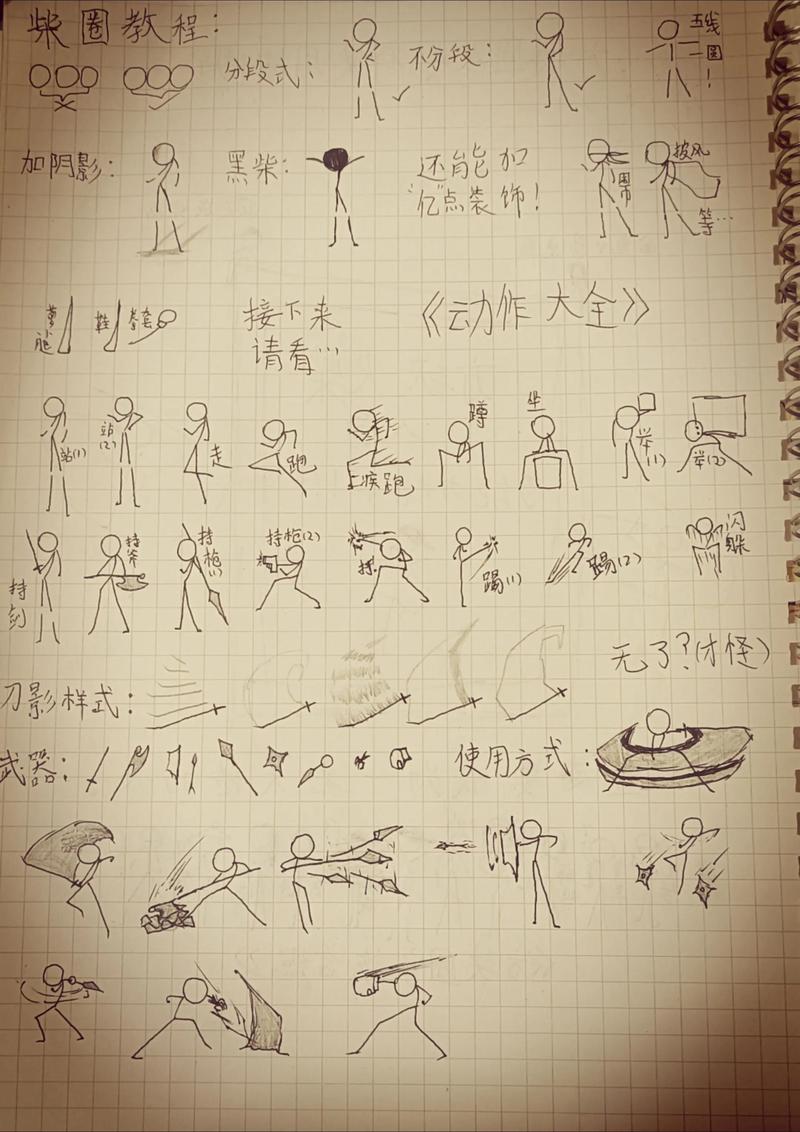 柴圈教程：
分段式：
不分段：
五线
一圆
！
加阴影：
黑柴：
还能加
“亿”点装饰！
披风
等…
鞋
拳套
接下来
请看…
《动作大全》
站(1)
站(2)
走
跑
疾跑
蹲
坐
举(1)
举(2)
持剑
持斧
持枪(1)
持枪(2)
踢(1)
踢(2)
闪躲
无了？(才怪)
刀影样式：
武器：
使用方式：